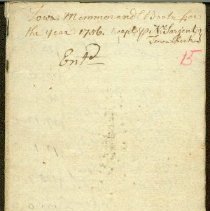 Town Memmorand Book for
the year 1756. kept pr N Sargent
Town Clerk
Entd
15